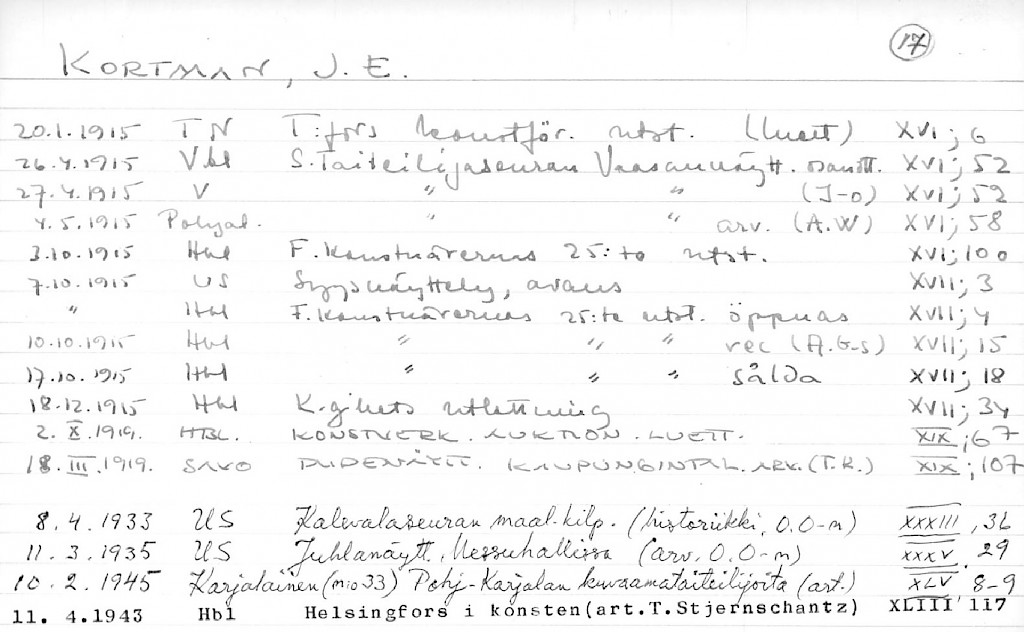 17
KORTMAN, J. E.
20.1.1915 TN T:fors konstför. utst. (luett) XVI; 6
26.4.1915 Vbl S. Taiteilijaseuran Vaasannäytt. osanott. XVI; 52
27.4.1915 V " " (J-o) XVI; 52
4.5.1915 Pohjal. " " arv. (A.W) XVI; 58
3.10.1915 Hbl F. Konstnärernas 25:te utst. XVI; 100
7.10.1915 US Syysnäyttely, avaus XVII; 3
" Hbl F. Konstnärernas 25:te utst. öppnas XVII; 4
10.10.1915 Hbl " " " rec (A.G-s) XVII; 15
17.10.1915 Hbl " " " sålda XVII; 18
18.12.1915 Hbl K.gillets utlottning XVII; 34
2. X. 1919. HBL. KONSTVERK. AUKTION. LUETT. XIX; 67
18. III. 1919. SAVO TAIDENÄYTT. KAUPUNGINTAL. ARV. (T.K.) XIX; 107
8. 4. 1933 US Kalevalaseuran maal. kilp. (historiikki, O.O-n) XXXIII, 36
11. 3. 1935 US Juhlanäytt. Messuhallissa (arv. O.O-n) XXXV. 29
10. 2. 1945 Karjalainen (n:o 33) Pohj-Karjalan kuvaamataiteilijoita (art.) XLV 8-9
11. 4.1943 Hbl Helsingfors i konsten(art.T.Stjernschantz) XLIII 117